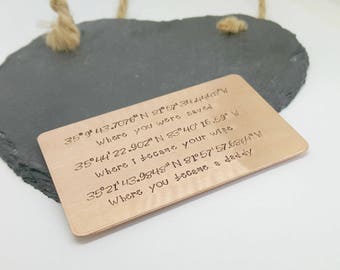 35°9'43.7076"N 81°57'
Where you were saved
35°44'22.902" N 83°40' 15.69" W
Where i became your wife
35°21'43.9848"N 81°57'57.6364"W
Where you became a daddy